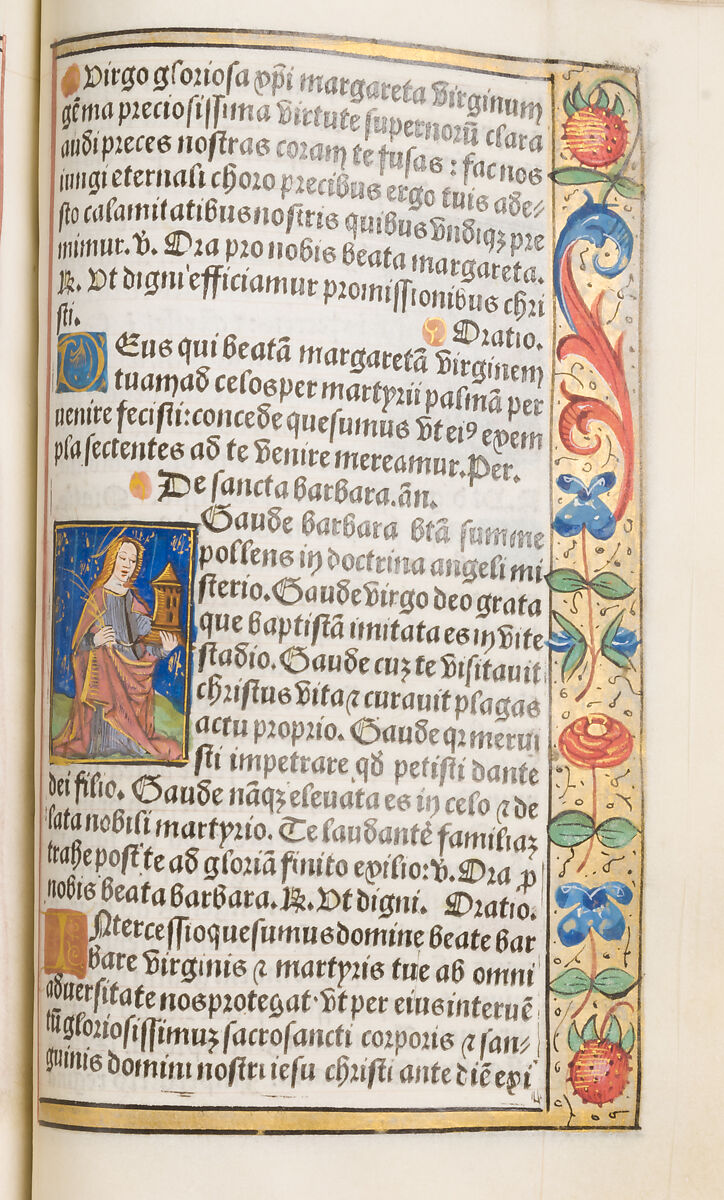 Virgo gloriosa xp̄i margareta virginum
gēma preciosissima virtute supernorū clara
audi preces nostras coram te fusas : fac nos
iungi eternali choro precibus ergo tuis ade⸗
sto calamitatibus nostris quibus vndiqꝫ pre
mimur. ℣. Ora pro nobis beata margareta.
℟. Vt digni efficiamur promissionibus chri
sti. Oratio.
DEus qui beatā margaretā virginem
tuam ad celos per martyrii palmā per
uenire fecisti: concede quesumus vt eiꝰ exem
pla sectentes ad te venire mereamur. Per.
De sancta barbara. añ.
Gaude barbara btā summe
pollens in doctrina angeli mi
sterio. Gaude virgo deo grata
que baptistā imitata es in vite
stadio. Gaude cuꝫ te visitauit
christus vita ⁊ curauit plagas
actu proprio. Gaude qr merui
sti impetrare qd̄ petisti dante
dei filio. Gaude nāqꝫ eleuata es in celo ⁊ de
lata nobili martyrio. Te laudantē familiaꝫ
trahe post te ad gloriā finito exilio: ℣. Ora ꝓ
nobis beata barbara. ℟. Vt digni. Oratio.
INtercessio quesumus domine beate bar
bare virginis ⁊ martyris tue ab omni
aduersitate nos protegat. vt per eius interuē
tū gloriosissimuꝫ sacrosancti corporis ⁊ san⸗
guinis domini nostri iesu christi ante diē exi